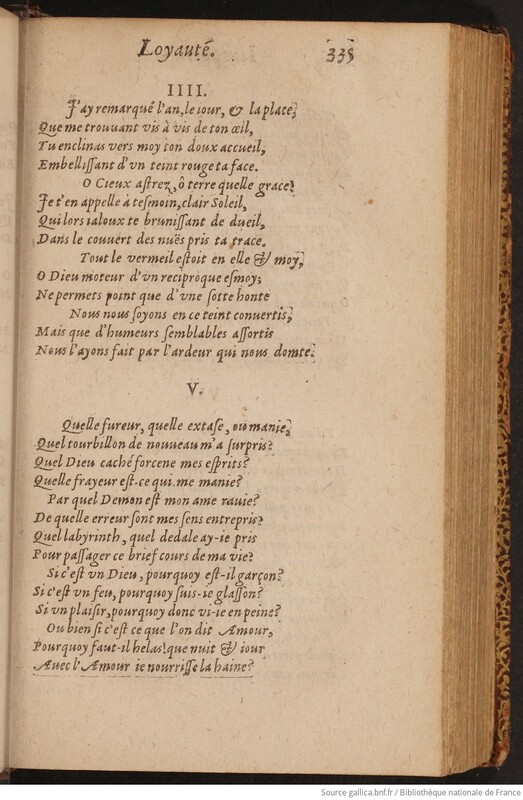 Loyauté. 335
IIII.
J'ay remarqué l'an, le iour, & la place,
Que me trouuant vis à vis de ton œil,
Tu enclinas vers moy ton doux accueil,
Embellissant d'vn teint rouge ta face.
O Cieux astrez, ô terre quelle grace!
Je t'en appelle à tesmoin, clair Soleil,
Qui lors ialoux te brunissant de dueil,
Dans le couuert des nuës pris ta trace.
Tout le vermeil estoit en elle & moy,
O Dieu moteur d'vn reciproque esmoy,
Ne permets point que d'vne sotte honte
Nous nous soyons en ce teint conuertis,
Mais que d'humeurs semblables assortis
Nous l'ayons fait par l'ardeur qui nous domte.
V.
Quelle fureur, quelle extase, ou manie,
Quel tourbillon de nouueau m'a surpris?
Quel Dieu caché forcene mes esprits?
Quelle frayeur est-ce qui me manie?
Par quel Demon est mon ame rauie?
De quelle erreur sont mes sens entrepris?
Quel labyrinth, quel dedale ay-ie pris
Pour passager ce brief cours de ma vie?
Si c'est vn Dieu, pourquoy est-il garçon?
Si c'est vn feu, pourquoy suis-ie glasson?
Si vn plaisir, pourquoy donc vi-ie en peine?
Ou bien si c'est ce que l'on dit Amour,
Pourquoy faut-il helas! que nuit & iour
Auec l'Amour ie nourrisse la haine?
Source gallica.bnf.fr / Bibliothèque nationale de France